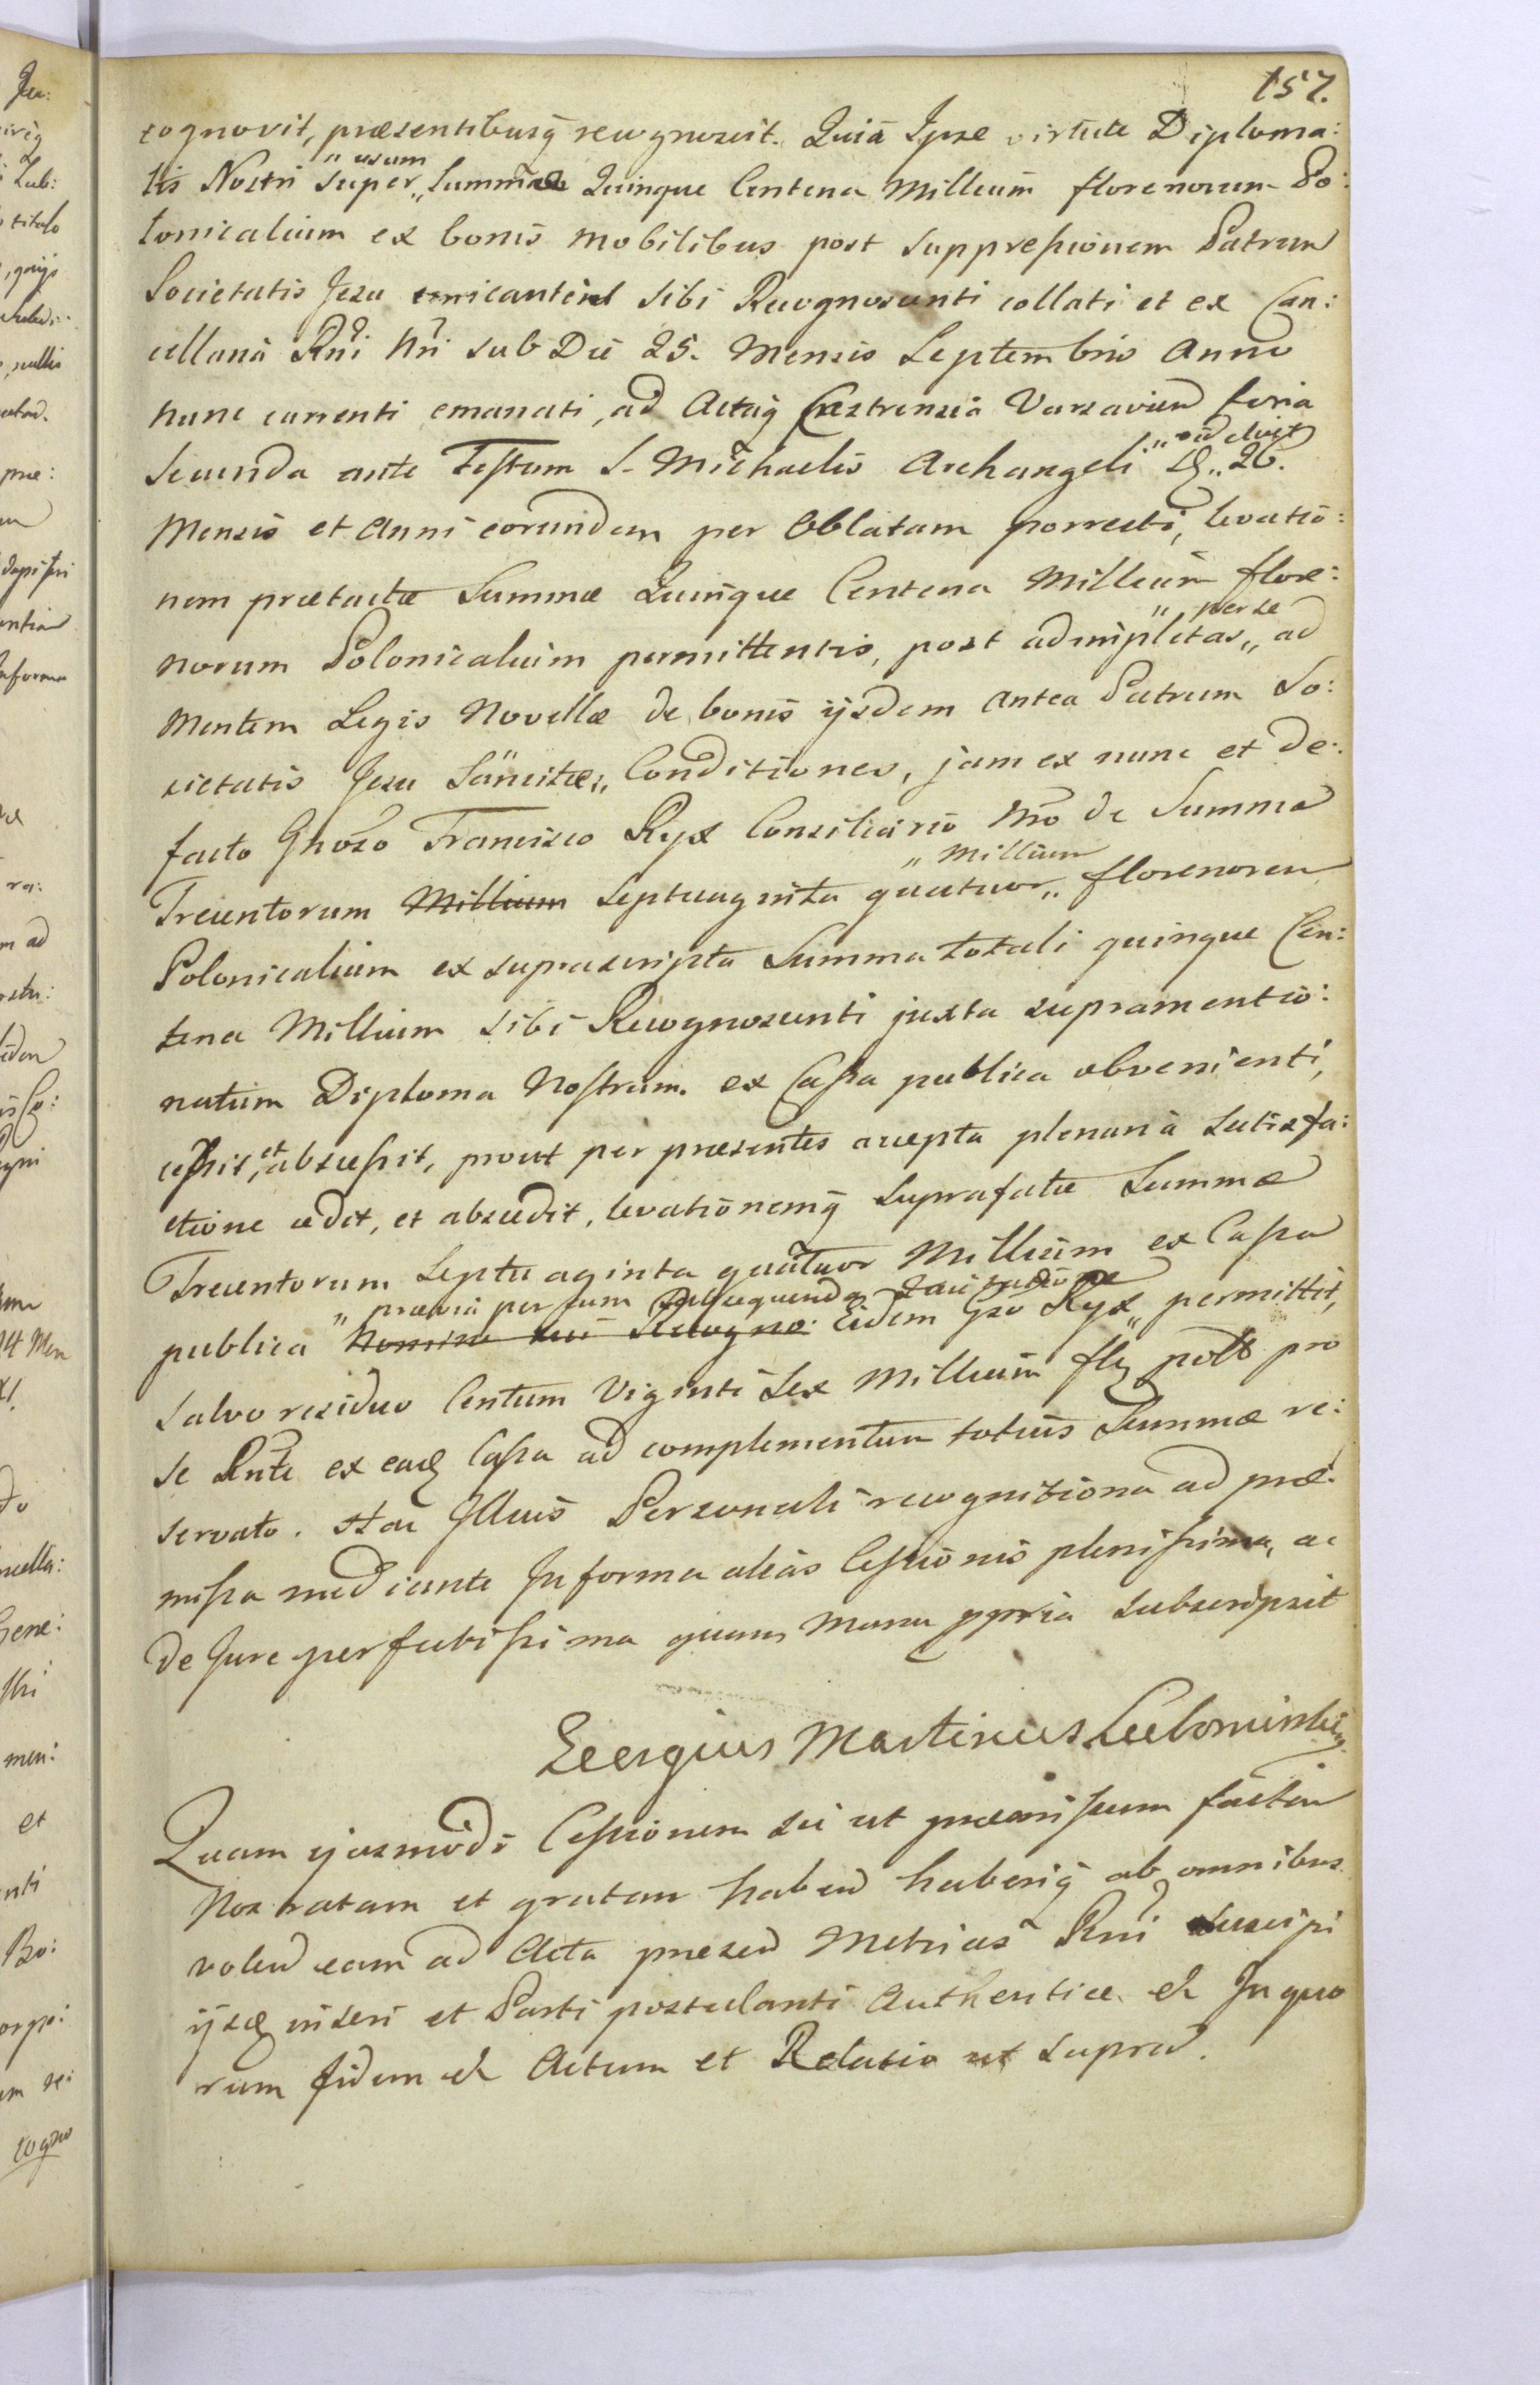 157.
cognovit, præsentibusq̃ recognoscit. Quia Ipse virtute Diploma:
tis Nostri super „usum„ Summæ Quinque Centena Millium florenorum Po:
lonicalium ex bonis mobilibus post suppressionem Patrum
Societatis Jesu emicanten sibi Recognoscenti collati et ex Can:
cellaria Rni Nri sub Die 25. Mensis Septembris Anno
nunc currenti emanati, ad Actaq̃ Castrensia Varsavien feria
Secunda ante Festum S. Michaelis Archangeli „id est„ 26.
Mensis et Anni eorundem per Oblatam porrecti, levatio:
nem prætactæ Summæ Quinque Centena Millium flore:
norum Polonicalium permittentis, post adimpletas „per se„ ad
mentem Legis Novellæ de bonis ijsdem antea Patrum So:
cietatis Jesu Sancitæ„ Conditiones, jam ex nunc et de:
facto Gnoso Francisco Ryx Consiliario Nro de Summa
Trecentorum Millium Septuaginta quatuor „Millium„ florenorum
Polonicalium ex suprascripta Summa totali quinque Cen:
tena Millium sibi Recognoscenti juxta supramentio:
natum Diploma Nostrum ex Cassa publica obvenienti,
cessit, et abscessit, prout per præsentes accepta plenaria satisfa:
ctione cedit, et abscedit, levationemq̃ suprafatæ Summæ
Trecentorum Septuaginta quatuor Millium ex Cassa
publica „prævia per eum subsequenda quietatione Nomine sui Recogno: Eidem Gso Ryx„ permittit,
salvo residuo Centum Viginti Sex Millium flq polt pro
se Rnte ex eadq Cassa ad complementum totius Summæ re:
servato. Hac Illius Personali recognitione ad præ:
missa mediante In forma alias Cessionis plenissima, ac
de Jure perfectissima quam manu ppria subscripsit
Georgius Martinus Lubomirski
Quam ejusmodi Cessionem sic ut præmissum factam
Nos ratam et gratam haben haberiq̃ ab omnibus
volen eam ad Acta præsen Metrices Rni suscipi
ijsdq inseri et Parti postulanti Authentice et In quo
rum fidem et Actum et Relatio ut supra.